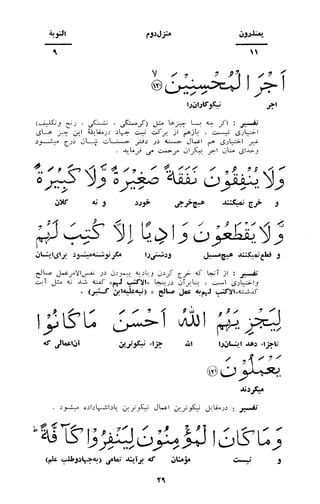 یعتذرون منزل دوم التوبة
۱۱ ۹
اَجْرَ الْمُحْسِنِیْنَ ﴿۱۲۰﴾
اجر نیکوکاران را
تفسیر : اگر چه بسا چیزها مثل (گرسنگی ، تشنگی ، رنج وتکلیف)
اختیاری نیست ، بازهم از برکت نیت جهاد درمقابله این چیز های
غیر اختیاری هم اعمال حسنه در دفتر حسنات شان درج میشود
وخدای منان اجر بیکران مرحمت می فرماید .
وَلَا یُنْفِقُوْنَ نَفَقَةً صَغِیْرَةً وَّلَا كَبِیْرَةً
و خرج نمیکنند هیچ خرجی خورد و نه کلان
وَّلَا یَقْطَعُوْنَ وَادِیًا اِلَّا كُتِبَ لَهُمْ
و قطع نمیکنند هیچ مسیل ودشتی را مگر نوشته میشود برای ایشان
تفسیر : از آنجا که خرج کردن وبادیه پیمودن در نفس الامر عمل صالح
واختیاری است ، بنابرآن درینجا «الاکتب لهم» گفته شد نه مثل آیت
گذشته «الاکتب لهم به عمل صالح» (نبه علیه ابن کثیر) .
لِیَجْزِیَهُمُ اللّٰهُ اَحْسَنَ مَا كَانُوْا
تا جزاء دهد ایشان را الله جزاء نیکوترین آن اعمالی که
یَعْمَلُوْنَ ﴿۱۲۱﴾
میکردند
تفسیر : در مقابل نیکوترین اعمال نیکوترین پاداش داده میشود .
وَمَا كَانَ الْمُؤْمِنُوْنَ لِیَنْفِرُوْا كَآفَّةً ؕ
و نیست مؤمنان که برآیند تمامی (به جهاد و طلب علم)
۲۹